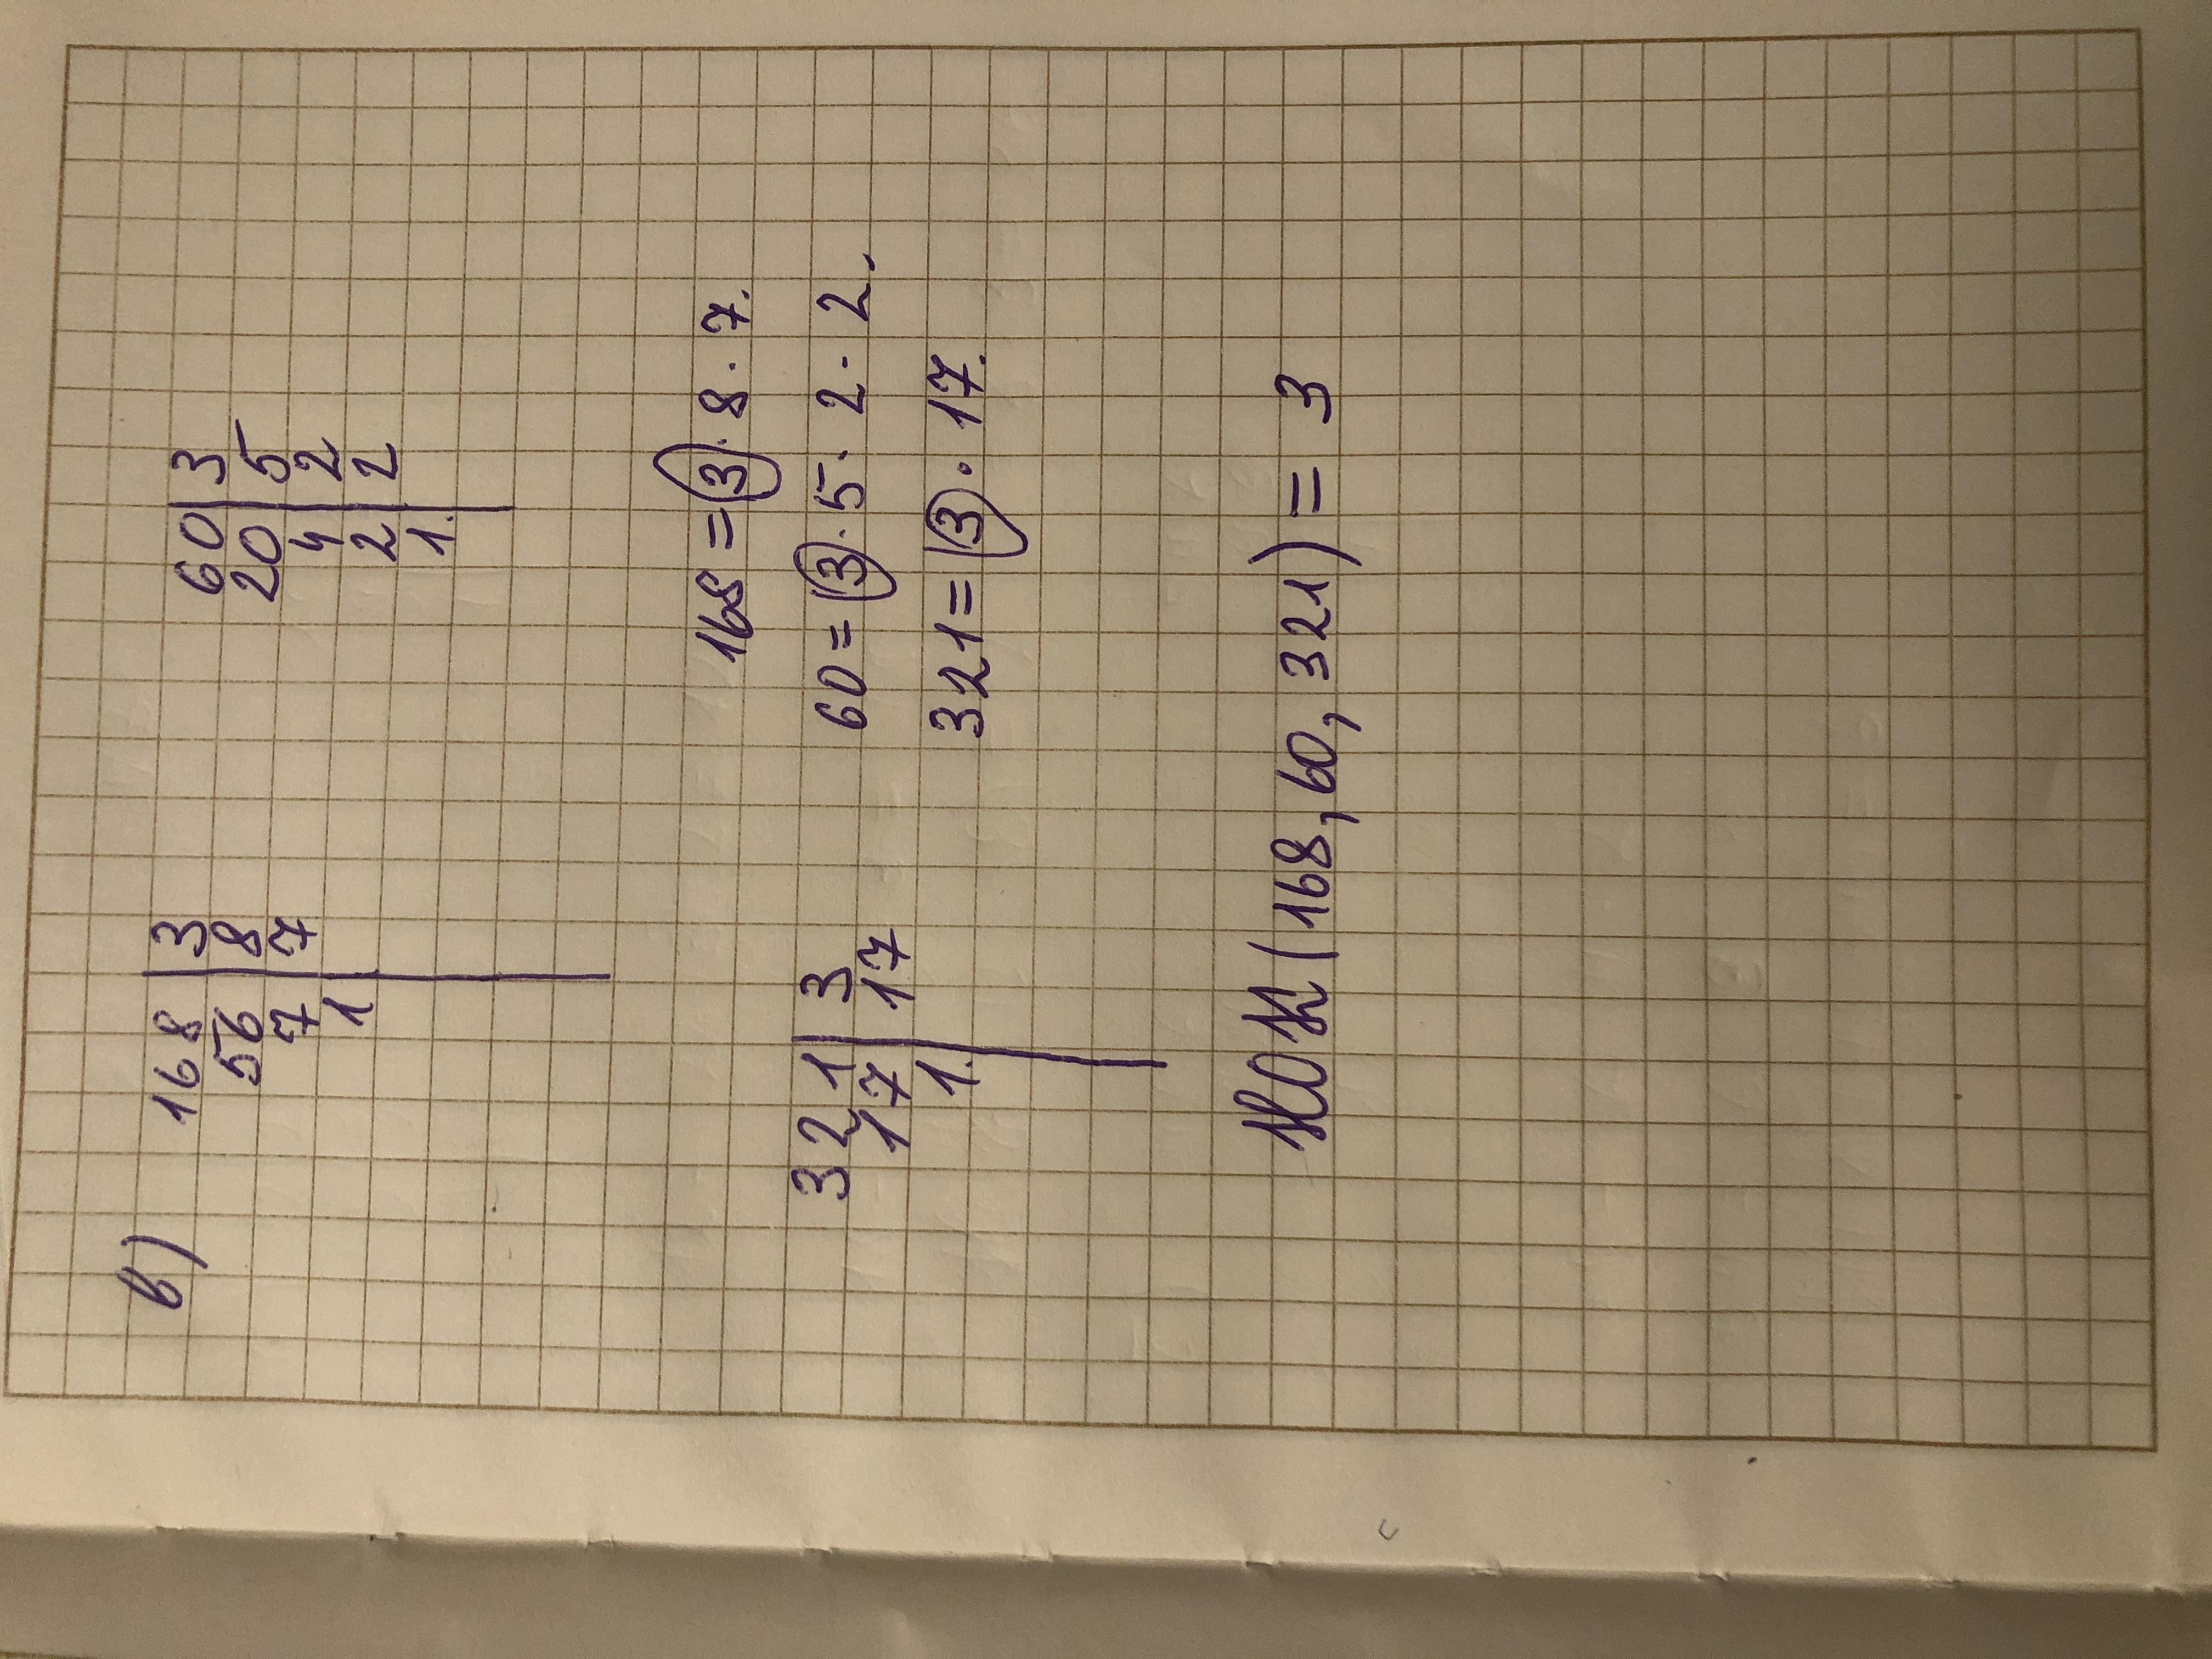 в)
168 | 3
56 | 8
7 | 7
1
60 | 3
20 | 5
4 | 2
2 | 2
1.
321 | 3
17 | 17
1.
168 = 3 · 8 · 7.
60 = 3 · 5 · 2 · 2.
321 = 3 · 17.
НОК (168, 60, 321) = 3